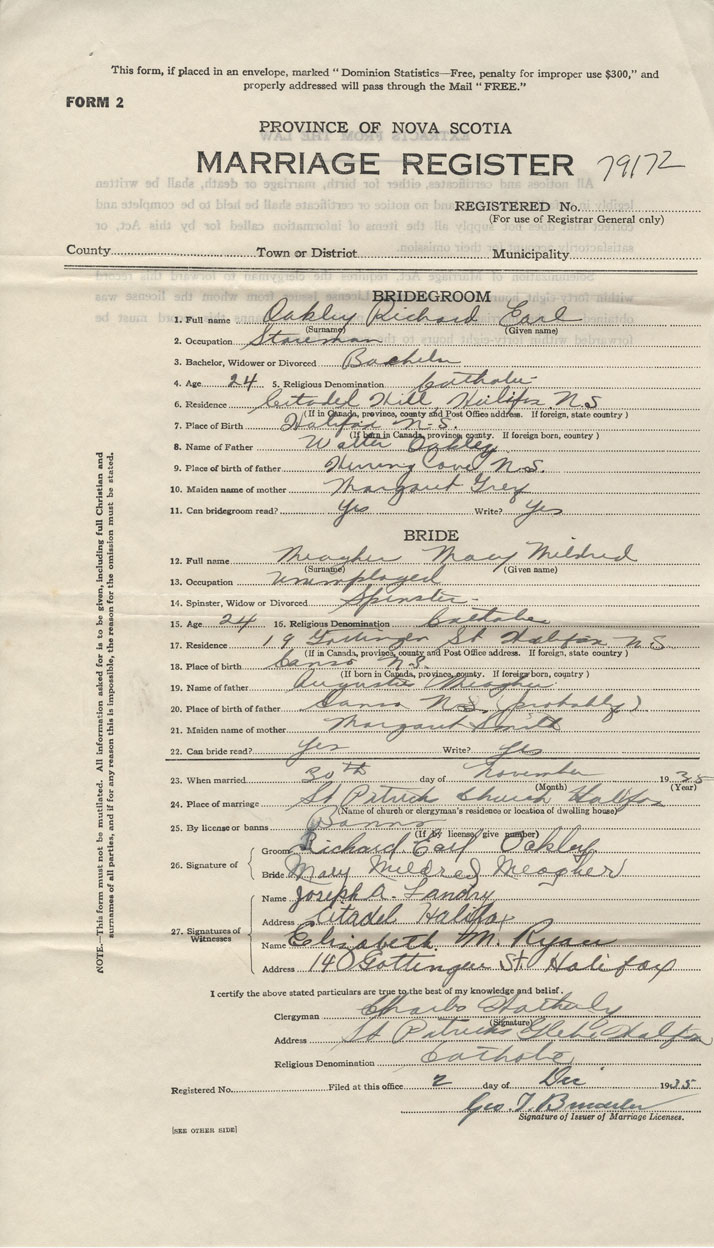 This form, if placed in an envelope, marked "Dominion Statistics—Free, penalty for improper use $300," and
properly addressed will pass through the Mail "FREE."
FORM 2
PROVINCE OF NOVA SCOTIA
MARRIAGE REGISTER 79172
REGISTERED No.
(For use of Registrar General only)
County Town or District Municipality
BRIDEGROOM
1. Full name Oakley Richard Earl
(Surname) (Given name)
2. Occupation Storeman
3. Bachelor, Widower or Divorced Bachelor
4. Age 24 5. Religious Denomination Catholic
6. Residence Citadel Hill Halifax N.S
(If in Canada, province, county and Post Office address. If foreign, state country)
7. Place of Birth Halifax N.S.
(If born in Canada, province, county. If foreign born, country)
8. Name of Father Walter Oakley
9. Place of birth of father Herring Cove N.S.
10. Maiden name of mother Margaret Grey
11. Can bridegroom read? Yes Write? Yes
BRIDE
12. Full name Meagher Mary Mildred
(Surname) (Given name)
13. Occupation Unemployed
14. Spinster, Widow or Divorced Spinster
15. Age 24 16. Religious Denomination Catholic
17. Residence 19 Gottingen St Halifax N S
(If in Canada, province, county and Post Office address. If foreign, state country)
18. Place of birth Canso N.S.
(If born in Canada, province, county. If foreign born, country)
19. Name of father Meagher
20. Place of birth of father Canso N.S. (probably)
21. Maiden name of mother Margaret Smith
22. Can bride read? Yes Write? Yes
23. When married 30th day of November 1935
(Month) (Year)
24. Place of marriage St Patrick Church Halifax
(Name of church or clergyman's residence or location of dwelling house)
25. By license or banns Banns
(If by license, give number)
26. Signature of
Groom Richard Earl Oakley
Bride Mary Mildred Meagher
27. Signatures of Witnesses
Name Joseph A. Landry
Address Citadel Halifax
Name Elizabeth M. Ryan
Address 140 Gottingen St. Halifax
I certify the above stated particulars are true to the best of my knowledge and belief.
Clergyman Charles
(Signature)
Address St Patricks Glebe Halifax
Religious Denomination Catholic
Registered No. Filed at this office 2 day of Dec 1935
Geo. T.
Signature of Issuer of Marriage Licenses.
[SEE OTHER SIDE]
NOTE.—This form must not be mutilated. All information asked for is to be given, including full Christian and
surnames of all parties, and if for any reason this is impossible, the reason for the omission must be stated.